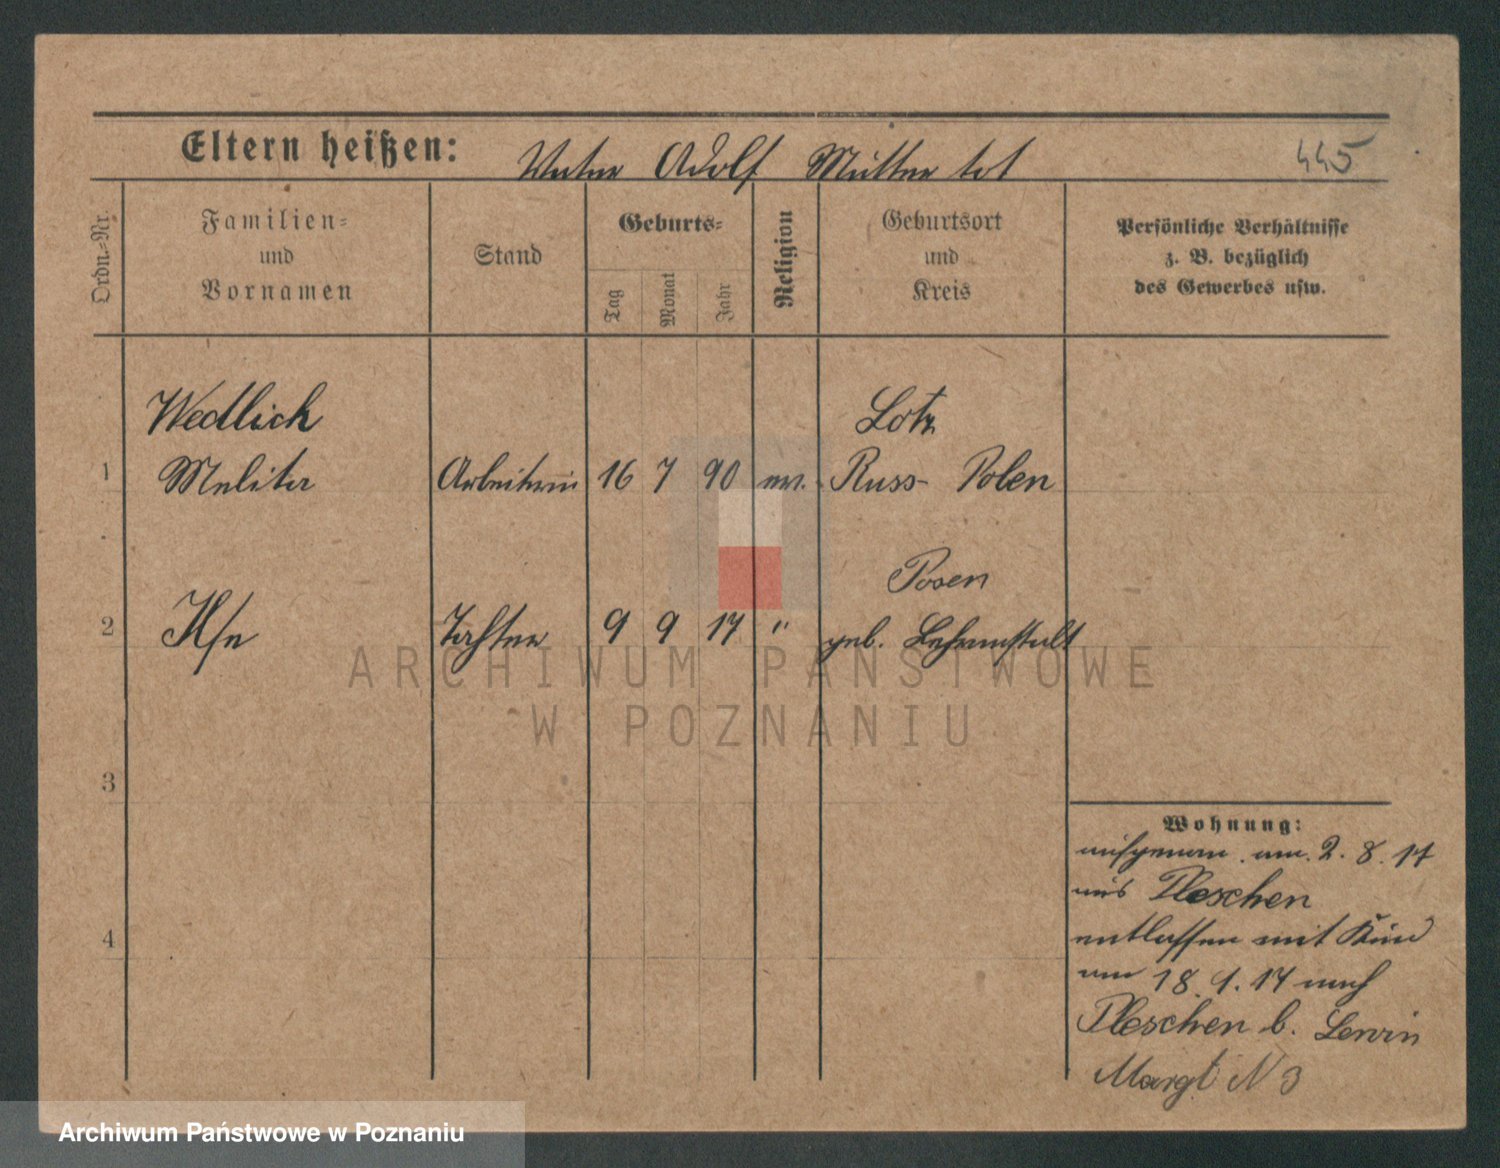 Eltern heißen: Vater Adolf Mutter tot 445
Ordn.-Nr.
Familien-
und
Vornamen
Stand
Geburts-
Tag
Monat
Jahr
Religion
Geburtsort
und
Kreis
Persönliche Verhältnisse
z. B. bezüglich
des Gewerbes usw.
Wedlich Lotz
1 Melita Arbeiterin 16 7 90 ev. Russ- Polen
Posen
2 Ilse Tochter 9 9 17 " geb. Lehranstalt
3
4
Wohnung:
aufgenom. am. 2. 8. 17
aus Pleschen
entlassen mit Kind
am 18. 9. 17 nach
Pleschen b. Lewin
Margt N 3
ARCHIWUM PAŃSTWOWE
W POZNANIU
Archiwum Państwowe w Poznaniu